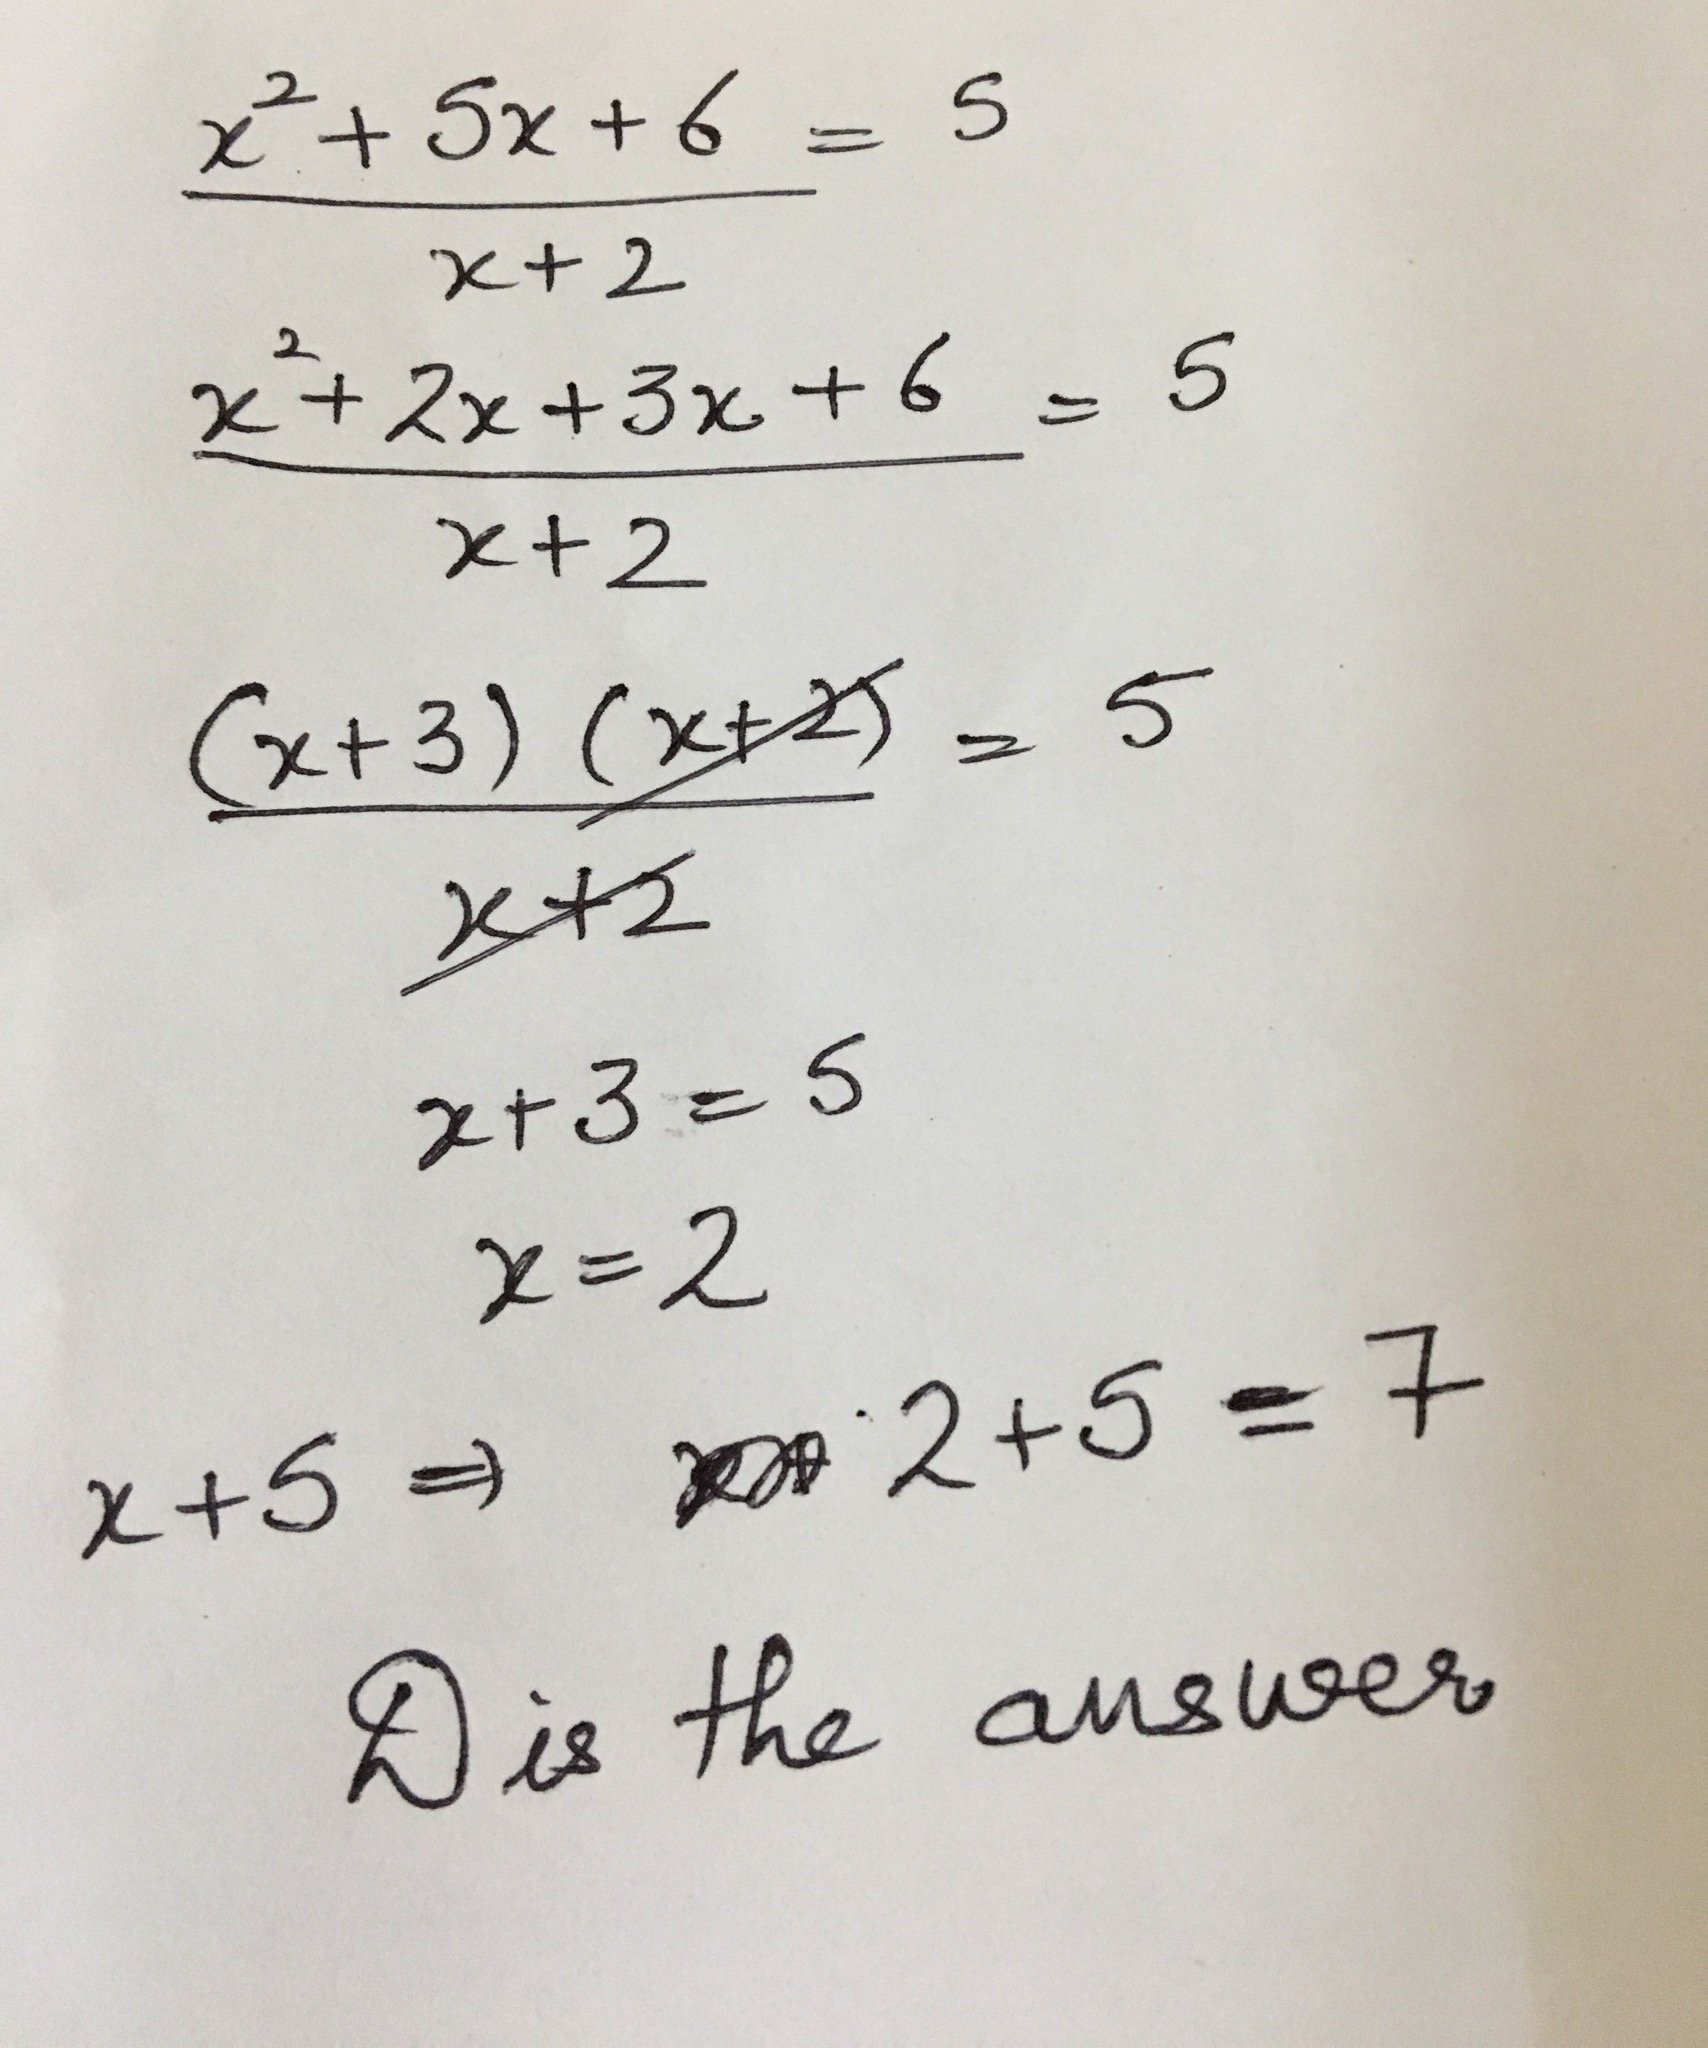 x² + 5x + 6 = 5
x + 2
x² + 2x + 3x + 6 = 5
x + 2
(x+3) (x+2) = 5
x+2
x+3 = 5
x = 2
x+5 ⇒ 2+5 = 7
D is the answer